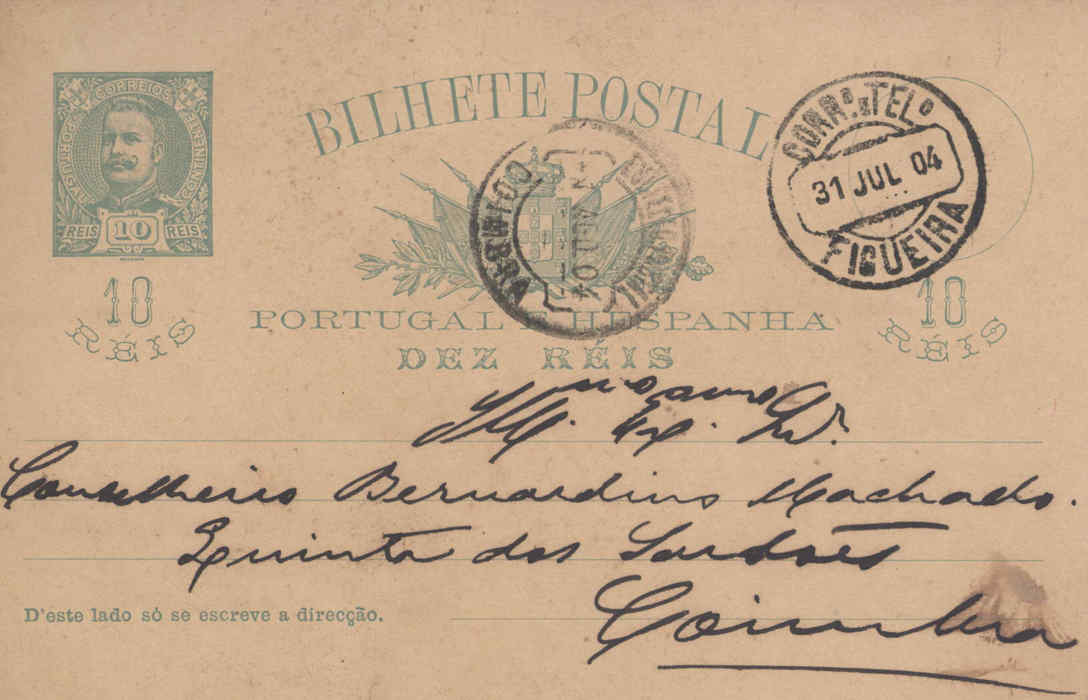 CORREIOS
PORTUGAL
CONTINENTE
REIS 10 REIS
BILHETE POSTAL
CORRº E TELº
31 JUL 04
FIGUEIRA
COIMBRA
10 RÉIS
10 RÉIS
PORTUGAL E HESPANHA
DEZ RÉIS
Illmo. Exmo. Sr.
Conselheiro Bernardino Machado.
Quinta dos Sardões
D'este lado só se escreve a direcção.
Coimbra